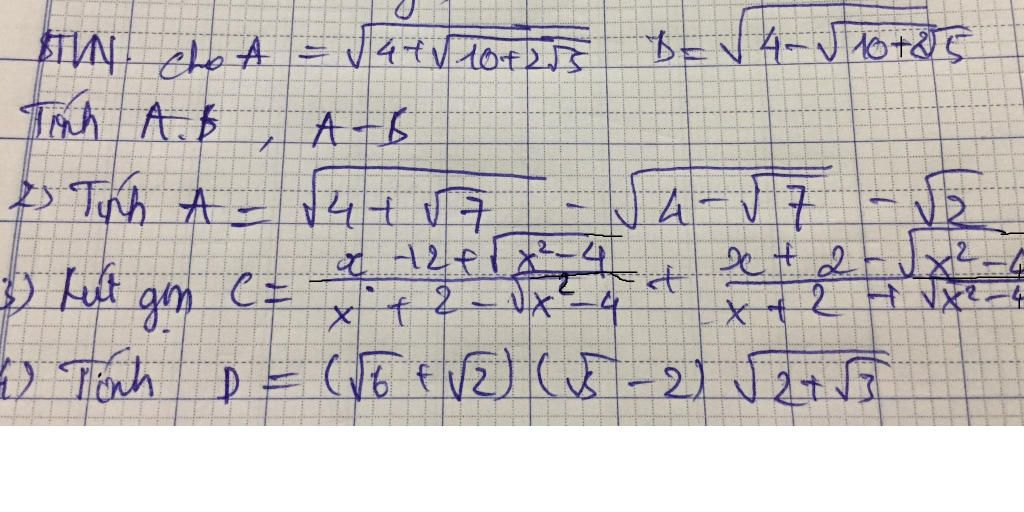 BTVN. cho A = √(4+√(10+2√5)) B = √(4-√(10+2√5))
Tính A.B , A-B
2) Tính A = √(4+√7) - √(4-√7) - √2
3) Rút gọn C = (x+2+√(x²-4))/(x+2-√(x²-4)) + (x+2-√(x²-4))/(x+2+√(x²-4))
4) Tính D = (√6+√2)(√3-2)√(2+√3)